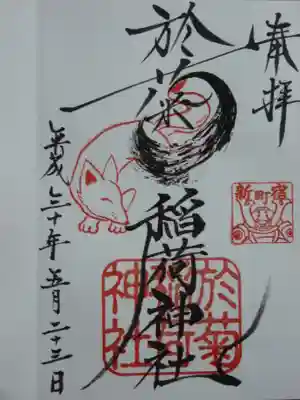 奉拝
於菊稲荷神社
平成三十年五月二十三日
新町宿
於菊稲荷神社